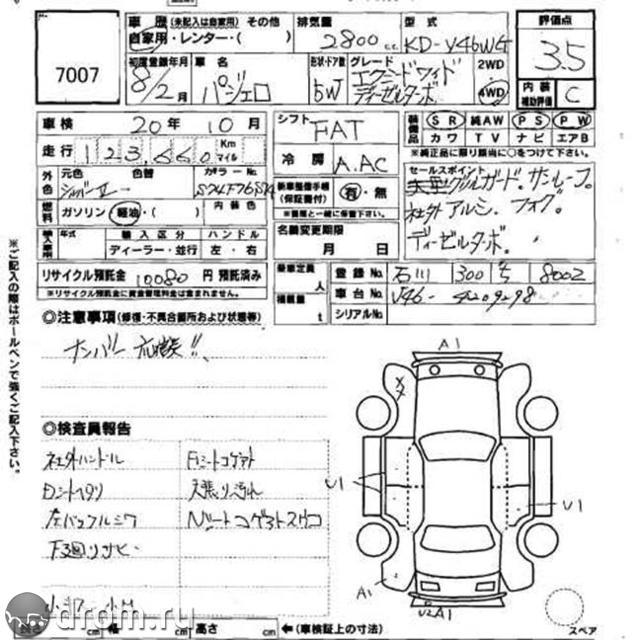 車 歴 (未記入は自家用) その他
自家用・レンター・( )
排気量
2800 cc
型 式
KD-V46WG
評価点
3.5
7007
初度登録年月
8/2月
車 名
パジェロ
形状・ドア数
5W
グレード
エクシードワイド
ディーゼルターボ
2WD
4WD
内 装
補助評価
C
車 検 20年 10月
シフト FAT
装備品
SR 純AW PS PW
カワ TV ナビ エアB
※純正品に限り該当に○をつけて下さい。
走 行 123,660 Km マイル
冷 房 A.AC
外色
元色 色替 カラーNo.
シルバーII
新車整備手帳
(保証書付)
有・無
※車歴と一緒に保管下さい。
セールスポイント
グリルガード。サンルーフ。
社外アルミ。フォグ。
ディーゼルターボ。
燃料
ガソリン 軽油・( ) 内装色
輸入車用
年式 輸入区分 ハンドル
ディーラー・並行 左・右
名義変更期限
月 日
リサイクル預託金 10080 円 預託済み
※リサイクル預託金に資金管理料金は含まれません。
乗車定員 人
積載量 t
登録No. 石川 300 ち 8002
車台No. V46-4209298
シリアルNo.
◎注意事項(修復・不具合箇所および状態等)
ナンバー 応談!!
◎検査員報告
社外ハンドル
Fシートコゲアト
Dシートヘタリ
天張り汚れ
左バックフルミワ
下廻りサビ
小キズ 小凹
A1
U1
U1
A1
U2A1
スペア
長さ cm 幅 cm 高さ cm ←(車検証上の寸法)
※ご記入の際はボールペンで強くご記入下さい。
drom.ru